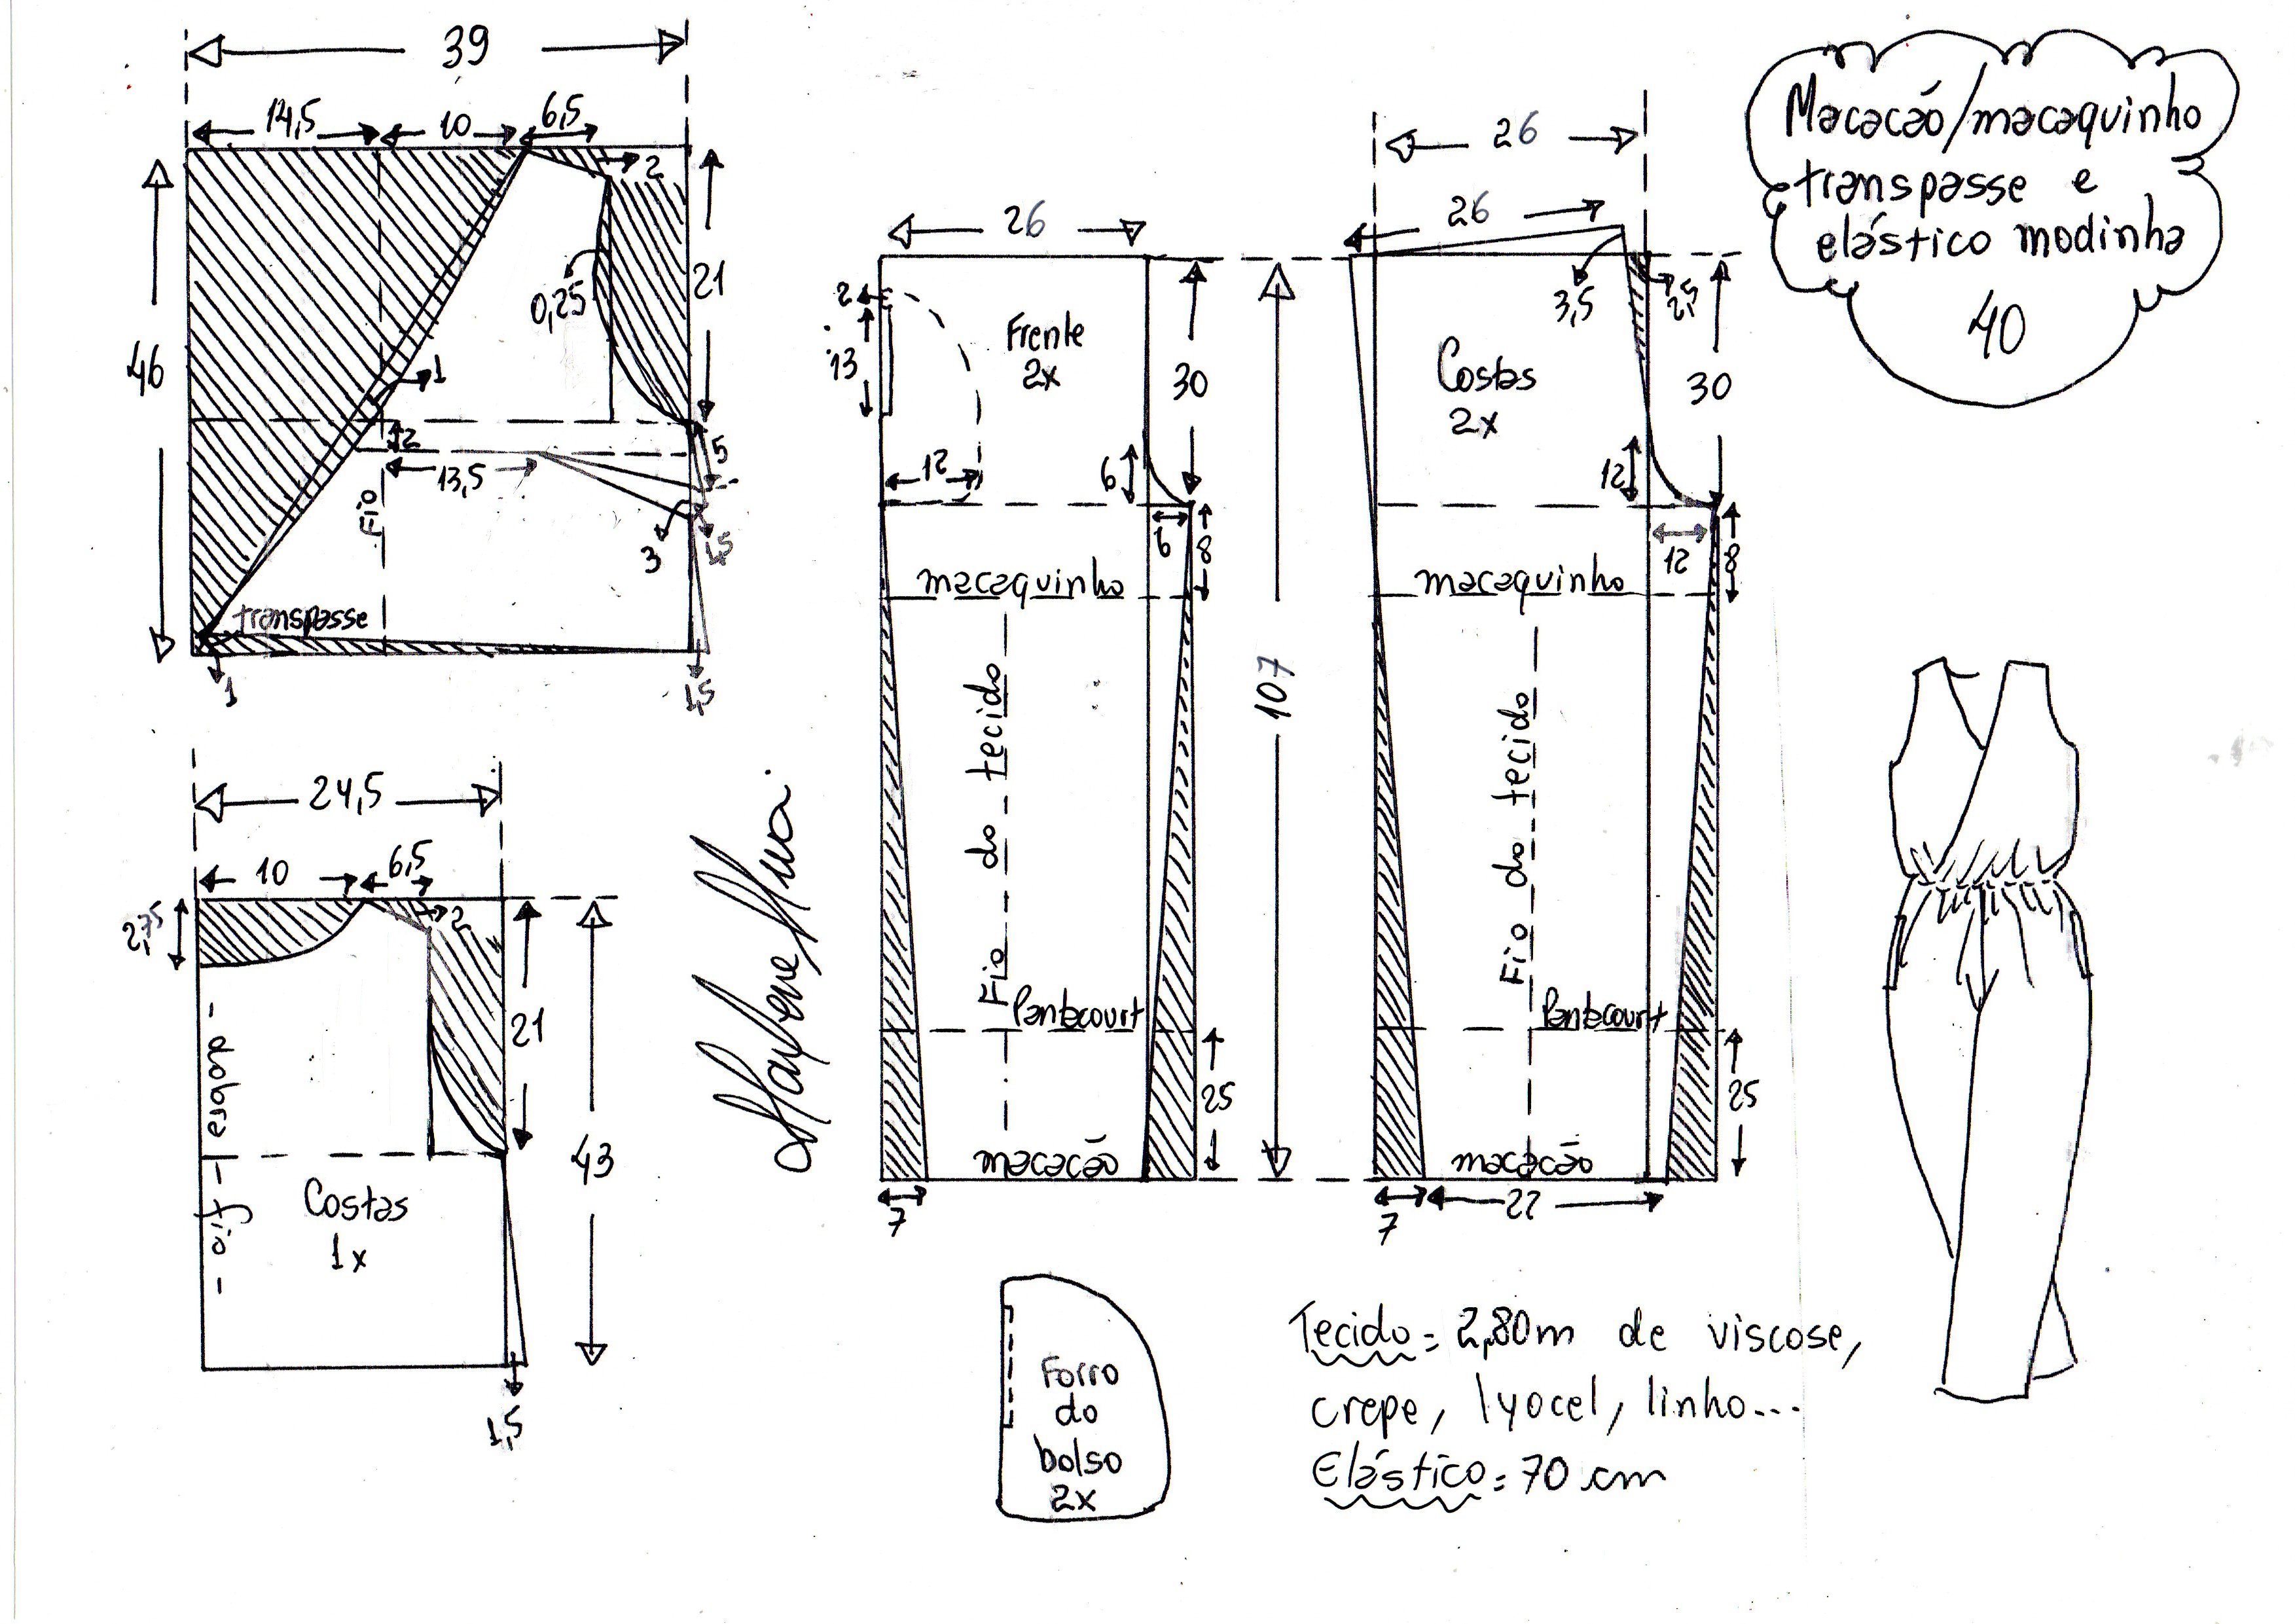 39
14,5
10
6,5
2
46
21
0,25
1
2
5
13,5
Fio
3
1,5
transpasse
1
1,5
24,5
10
6,5
2,75
2
21
43
dobra
fio
Costas
1x
1,5
26
2
13
Frente
2x
30
12
6
6
8
macaquinho
Fio do tecido
107
Pantacourt
25
macacão
7
26
26
3,5
2,5
Costas
2x
30
12
12
8
macaquinho
Fio do tecido
Pantacourt
25
macacão
7
22
Macacão/macaquinho
transpasse e
elástico modinha
40
Forro
do
bolso
2x
Tecido = 2,80m de viscose,
crepe, lyocel, linho...
Elástico = 70 cm